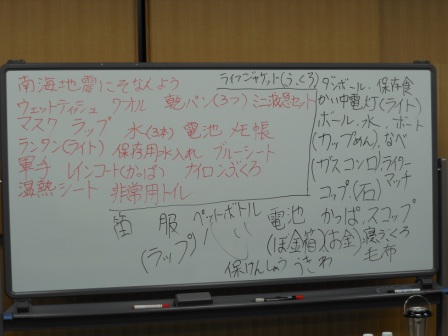 南海地震にそなえよう
ウェットティッシュ タオル 乾パン(3つ) ミニ
マスク ラップ 水(3本) 電池 メモ帳
ランタン(ライト) 保存用水入れ ブルーシート
軍手 レインコート(かっぱ) ナイロンぶくろ
温熱シート 非常用トイレ
ライフジャケット(うくろ)
ダンボール、保存食
かい中電灯(ライト)
ボール、水、ボート
(カップめん)、なべ
(ガスコンロ)、ライター
マッチ
コップ、(石)
缶 服 ペットボトル 電池 かっぱ、スコップ
(ラップ) (ぼ金箱)(お金) 寝ぶくろ
保けんしょう うきわ 毛布